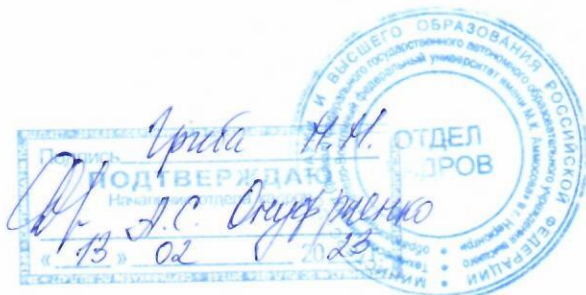 Подпись Гриба Н.Н.
ПОДТВЕРЖДАЮ
Начальник отдела
А.С. Онуфриенко
« 13 » 02 2023
ОТДЕЛ
КАДРОВ
И ВЫСШЕГО ОБРАЗОВАНИЯ РОССИЙСКОЙ ФЕДЕРАЦИИ
государственного автономного образовательного учреждения высшего
федеральный университет имени М.К. Аммосова в г. Нерюнгри